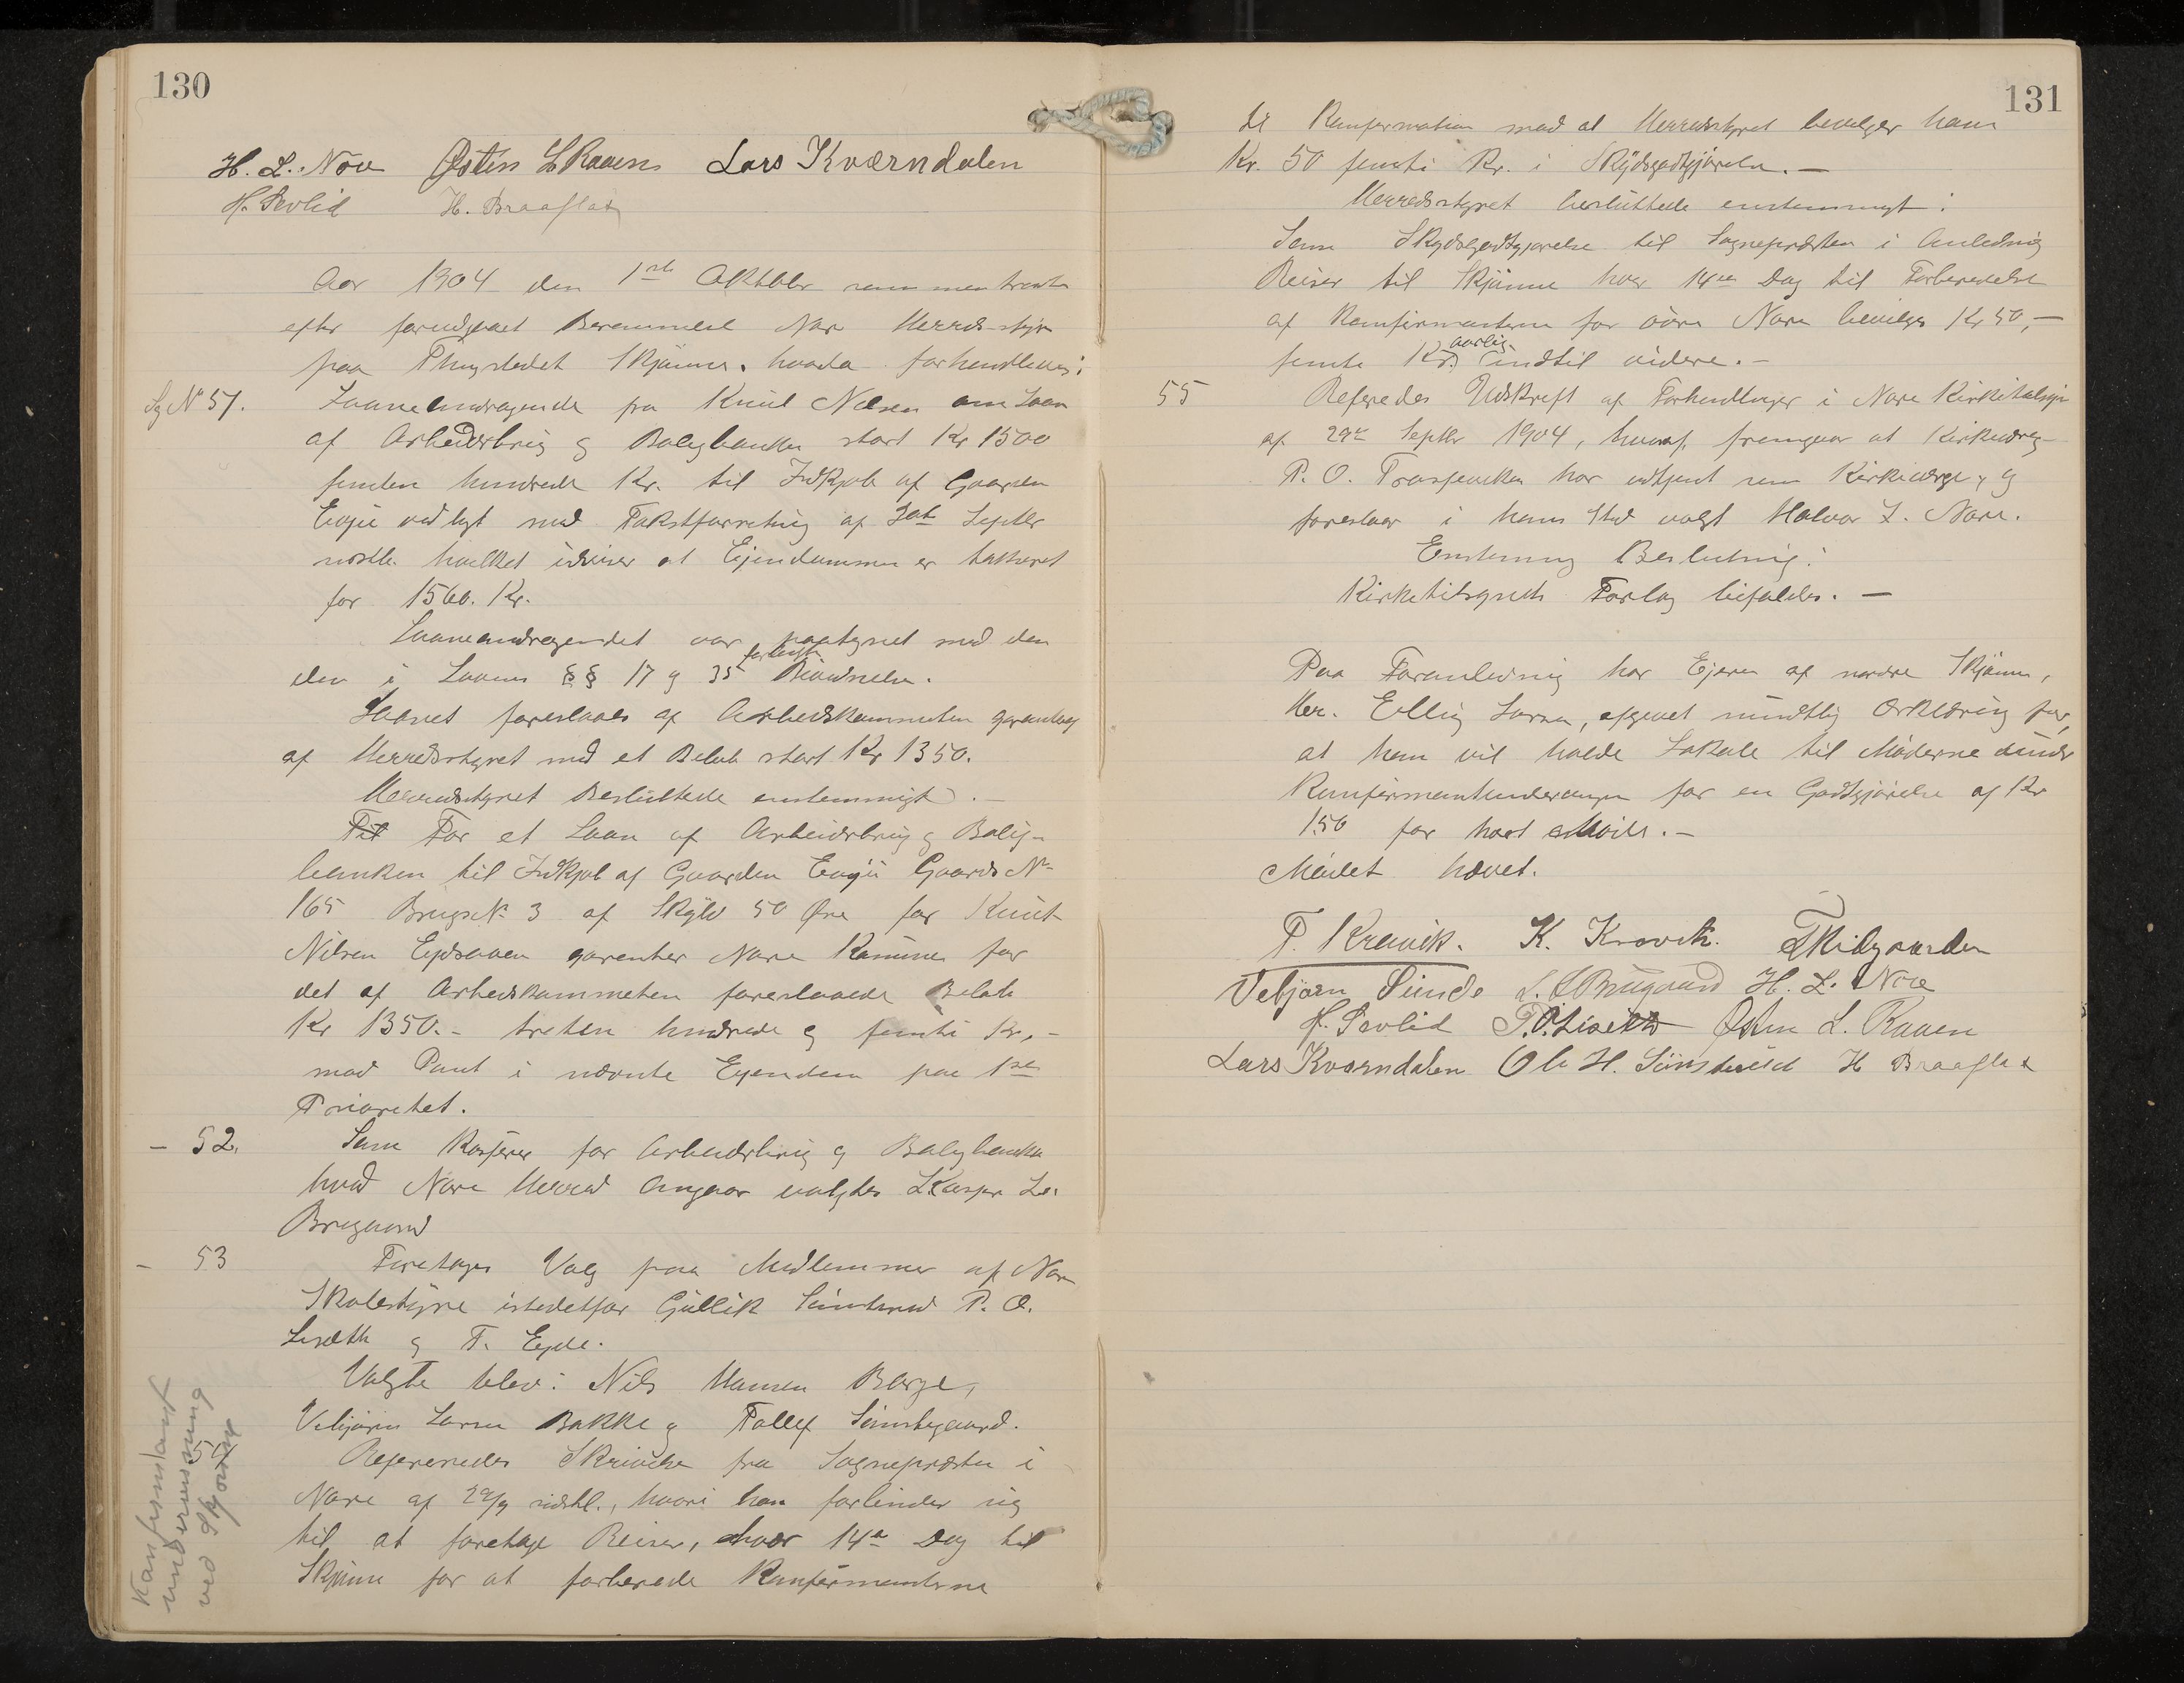 130
H. L. Nore Østen L Raaen Lars Kværndalen
H. Sevlid H. Braaflat
Aar 1904 den 1ste Aktober sammentraate
efter forudgaaet Berammelse Nore Herredsstyre
paa Thingstedet Skjønne. hvorda forhandledes:
Sg No 51. Laaneandragende fra Knut Nilsen om Laan
af Arbeiderbrug og Boligbanken stort Kr 1500
femten hundrede Kr. til Indkjøb af Gaarden
Evju vedlagt med Takstforretning af Septbr
sidstl. hvilket udviser at Ejendommen er taxseret
for 1560. Kr.
Laaneandragendet var paategnet med den
den i Lovens §§ 17 g 35 forlangte Bevidnelse.
Laanet foreslaaes af Arbeidskommiteen garanteres
af Herredsstyret med et Beløb stort Kr 1350.
Herredsstyret Besluttede enstemmigt. –
Til For et Laan af Arbeiderbrug g Bolig-
banken til Indkjøb af Gaarden Evju Gaards No
165 Brugs No 3 af Skyld 50 Øre for Knut
Nilsen garanter Nore Komune for
det af Arbeidskommiteen foreslaaede Beløb
Kr 1350.- tretten hundrede g femti Kr.-
mod Pant i nævnte Ejendom paa 1ste
Prioritet.
– 52. Som Kasserer for Arbeiderbrug g Boligbanken
hvad Nore Herred Angaar valgtes L. Le.
Brugaard
– 53 Foretoges Valg paa Medlemmer af Nore
Skolestyre istedetfor Gullik P. O.
Liseth g T. Eyde.
Valgte blev: Nils Hansen Berge,
Vebjørn Larsen Bakke g Tollef Sønstegaard.
54 Refereredes Skrivelse fra Sognepresten i
Nore af 29/9 sidstl., hvori han forbinder sig
til at foretage Reiser, hver 14de Dag til
Skjønne for at forberede Konfirmanterne
Konfirmant
undervisning
ved Skjønne
131
til Konfermation mod at Herredsstyret bevilger ham
Kr. 50 femti Kr. i Skydsgodtgjørelse. –
Herredsstyret besluttede enstemmigt:
Som Skydsgodtgjørelse til Sognepresten i Anledning
Reiser til Skjønne hver 14de Dag til Forberedelse
af Konfirmanterne for øvre Nore bevilges Kr 50,–
femti Kr. aarlig indtil videre. –
55 Referedes Udskrift af Forhandlinger i Nore Kirketilsyn
af 29de Septbr 1904, hvoraf fremgaar at Kirkeverge
P. O. har udtjent som Kirkeverge, g
foreslaar i hans Sted valgt Halvor L. Nore.
Enstemmig Beslutning:
Kirketilsynets Forslag bifaldes. –
Paa Foranledning har Ejeren af nordre Skjønne,
Her. Elling Larsen, afgivet mundtlig Erklæring for,
at han vil holde Lokale til Møderne under
Konfirmantundervisn for en Godtgjørelse af Kr
1.50 for hvert Møde. –
Mødet hævet.
T. Kravik. K. Kravik. T Kidgaarden
Vebjørn Sunde L. L Brugaard H. L. Nore
H. Sevlid P. O. Liseth Østen L. Raaen
Lars Kværndalen Ole H. Sønsterud H Braaflat